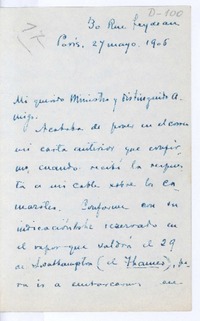 D-100
30 Rue Feydeau
Paris, 27 mayo, 1905
Mi querido Ministro y distinguido a-
migo:
Acababa de poner en el correo
mi carta anterior que confir-
mo, cuando recibí la respues-
ta a mi cable sobre los ca-
marotes. Conforme con su
indicación he reservado en
el vapor que saldrá el 29
de Southampton (el Thames), pa-
ra ir a embarcarnos en